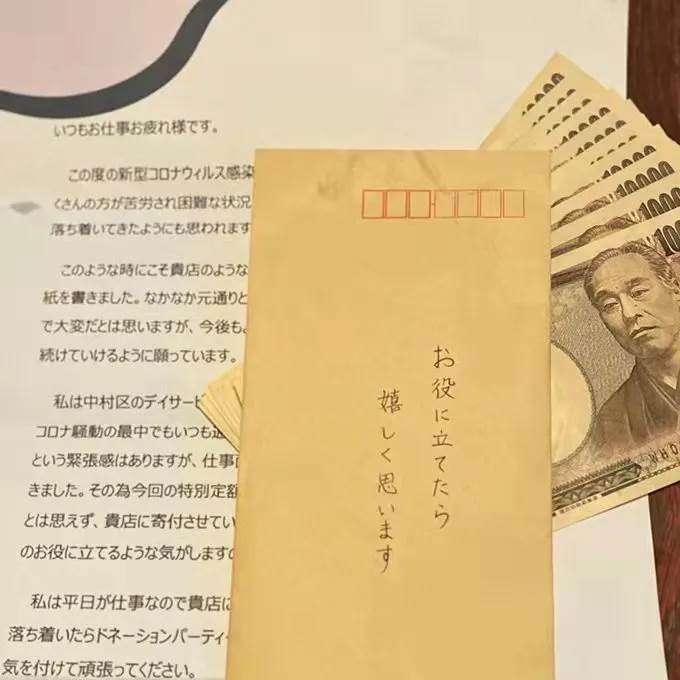 いつもお仕事お疲れ様です。
この度の新型コロナウィルス感染
くさんの方が苦労され困難な状況
落ち着いてきたようにも思われます
このような時にこそ貴店のような
紙を書きました。なかなか元通りと
で大変だとは思いますが、今後も
続けていけるように願っています。
私は中村区のデイサービ
コロナ騒動の最中でもいつも通
という緊張感はありますが、仕事
きました。その為今回の特別定額
とは思えず、貴店に寄付させてい
のお役に立てるような気がします
私は平日が仕事なので貴店に
落ち着いたらドネーションパーティー
気を付けて頑張ってください。
お役に立てたら
嬉しく思います
10000
1000